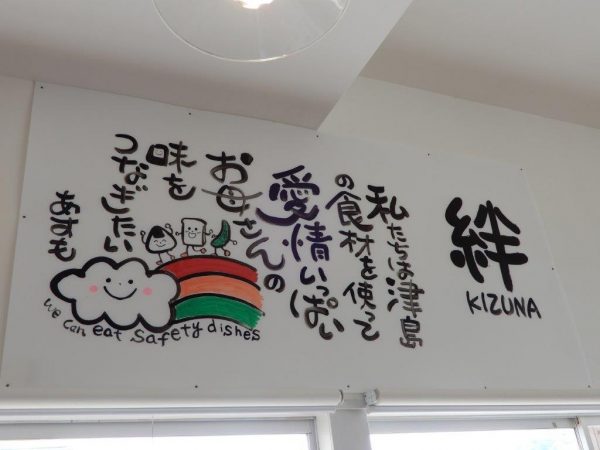 絆
KIZUNA
私たちは津島
の食材を使って
愛情いっぱい
お母さんの
味を
つなぎたい
あすも
We can eat safety dishes